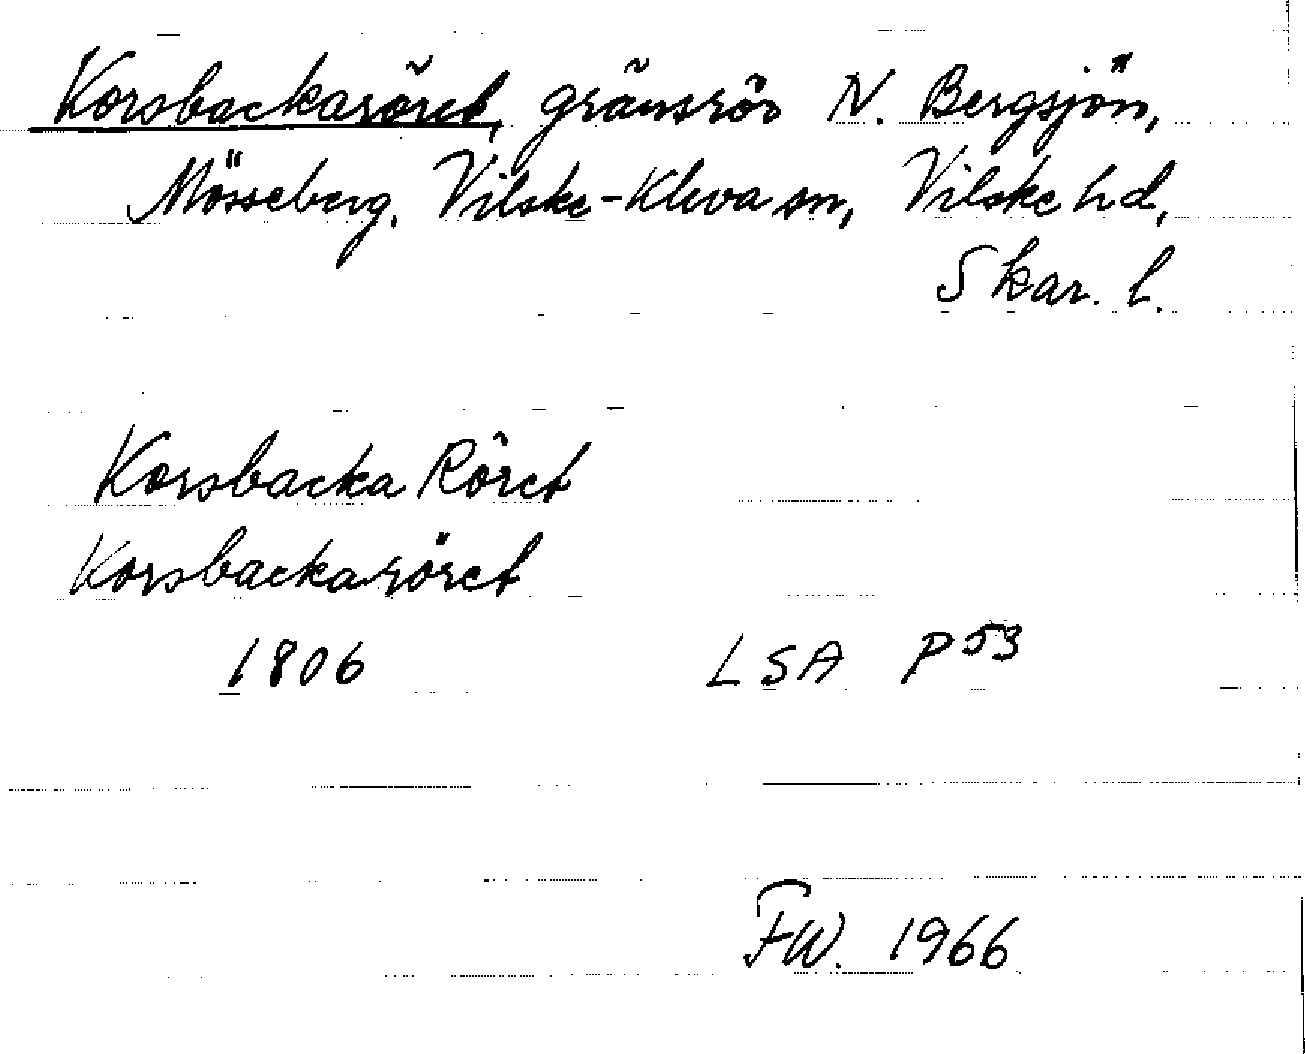 Korsbackaröret, gränsrör N. Bergsjön,
Mösseberg, Vilske-Kleva sn, Vilske hd,
Skar. l.
Korsbacka Röret
Korsbackaröret
1806 LSA P53
FW. 1966